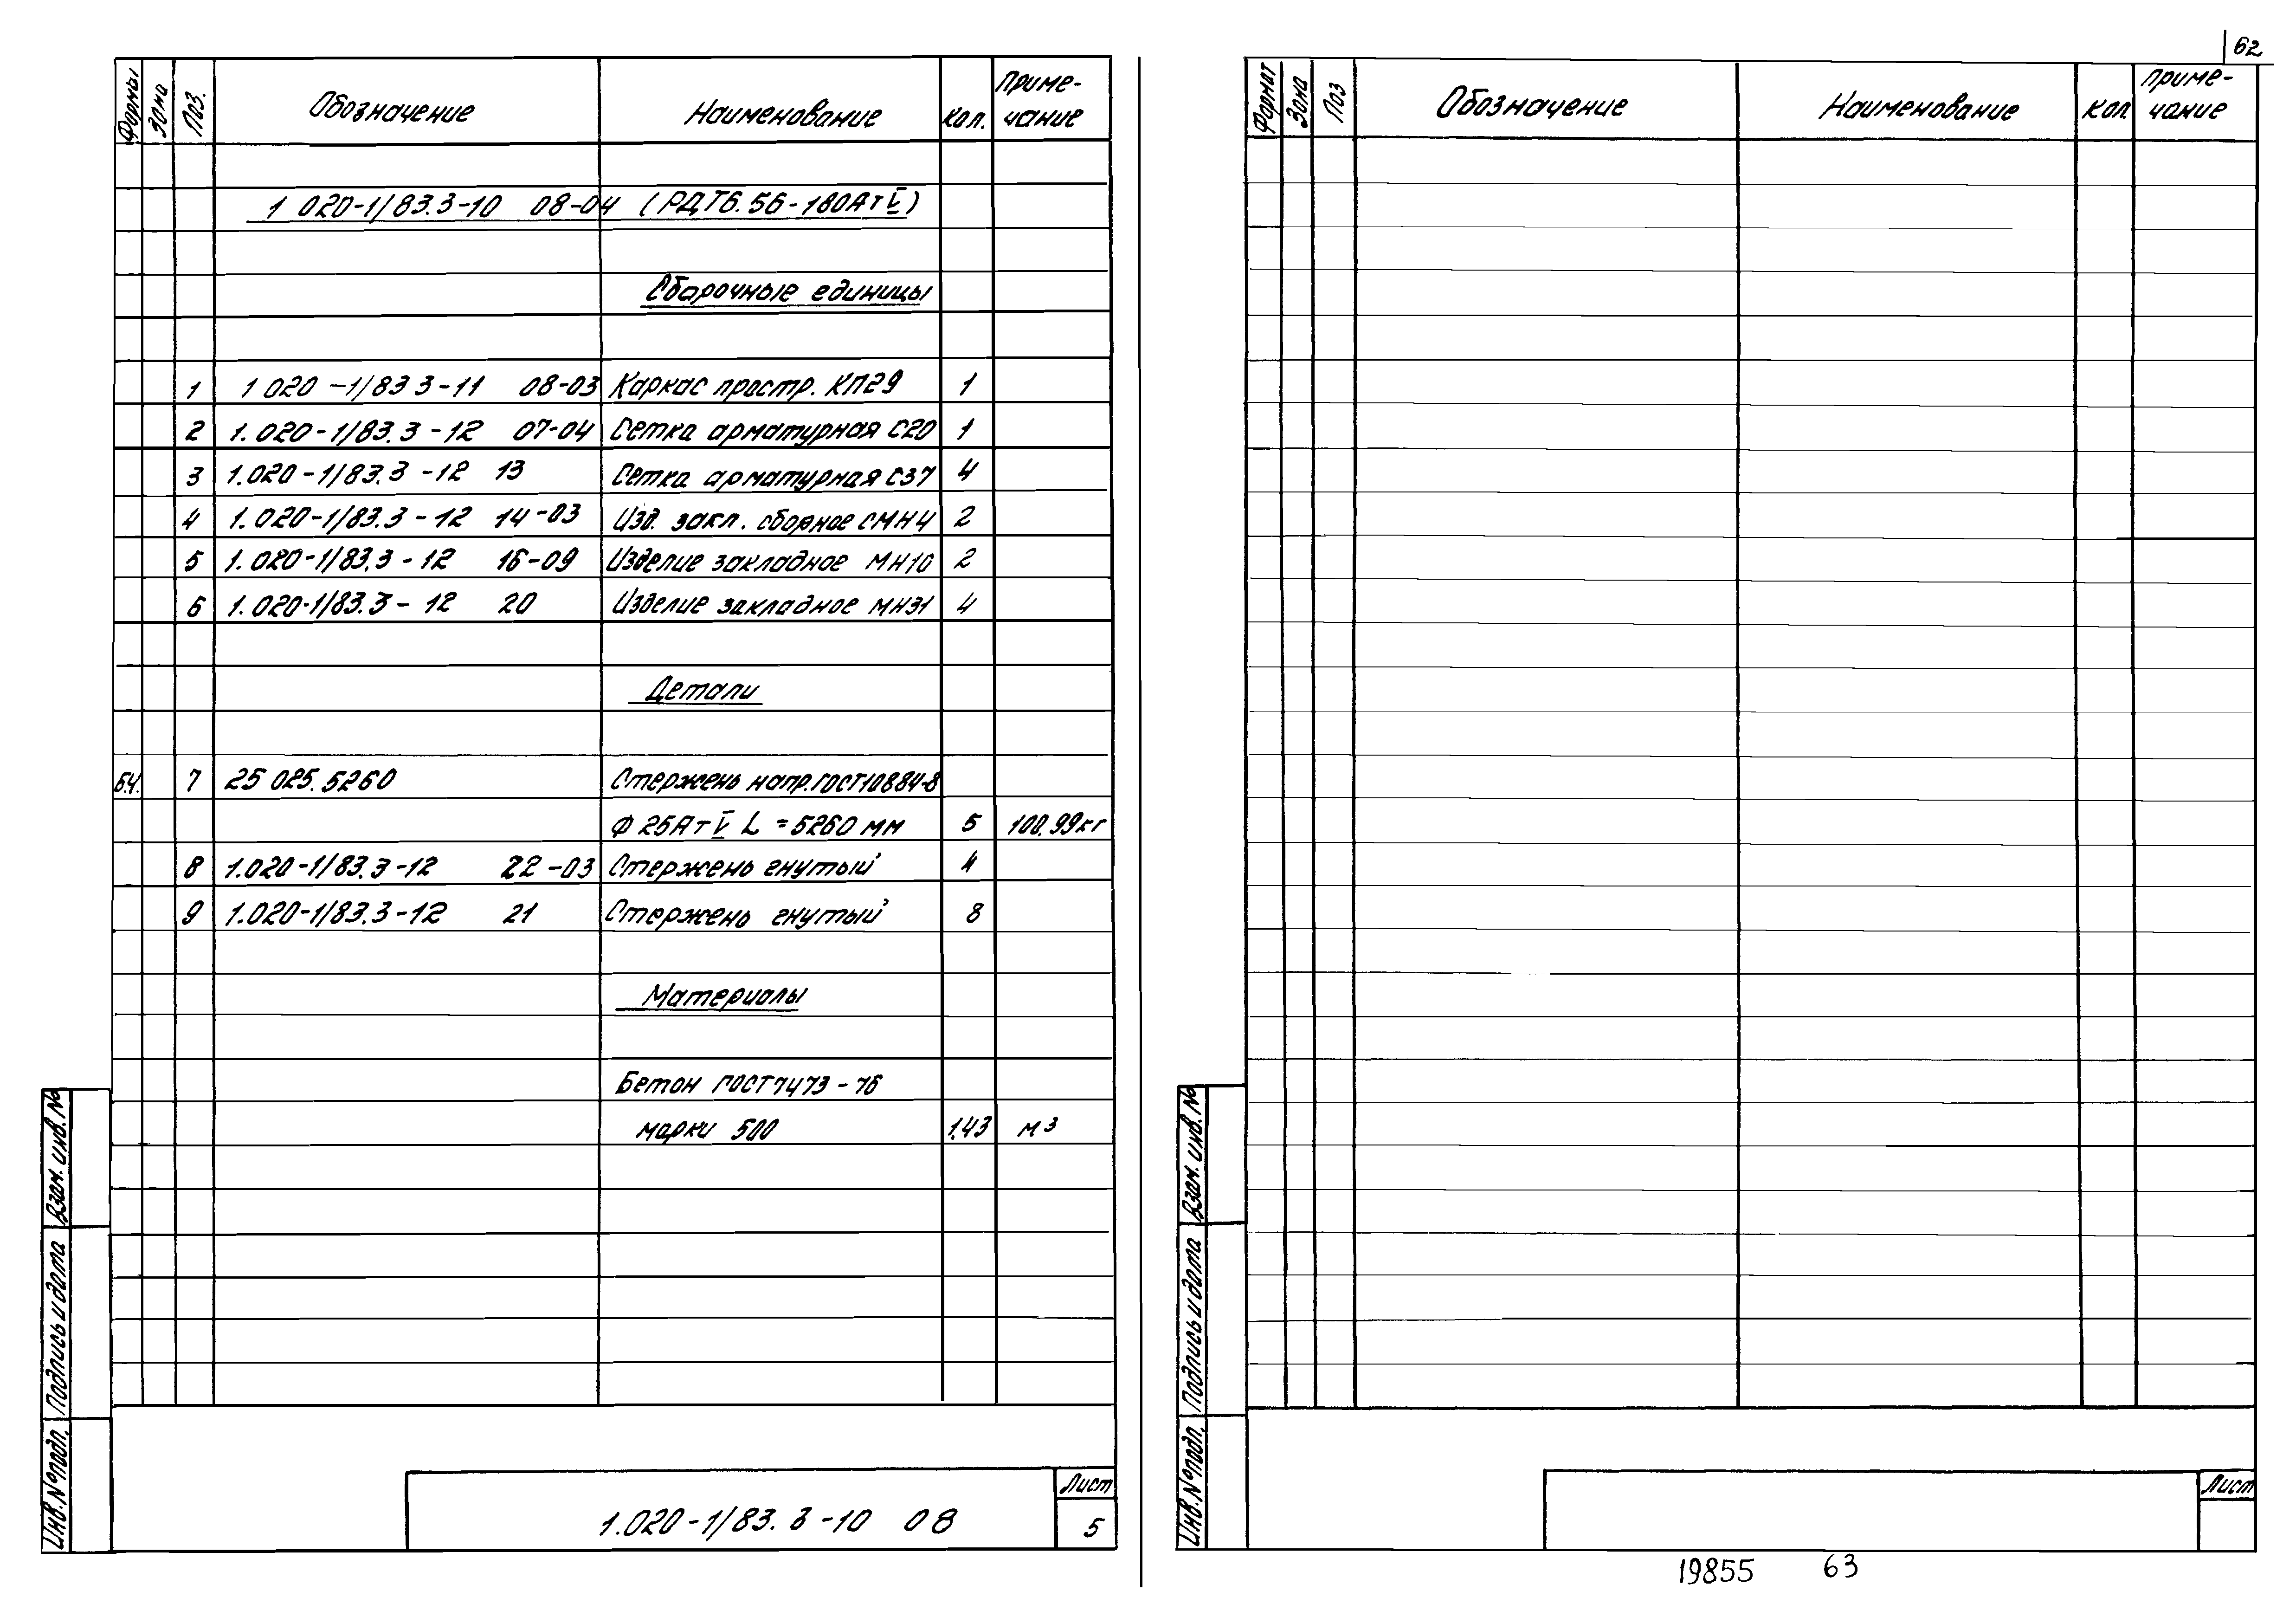 62
Формы Зона Поз. Обозначение Наименование Кол. Приме-
чание
1 020-1/83.3-10 08-04 (РДТ6.56-180АтV)
Сборочные единицы
1 1 020-1/83 3-11 08-03 Каркас простр. КП29 1
2 1.020-1/83.3-12 07-04 Сетка арматурная С20 1
3 1.020-1/83.3-12 13 Сетка арматурная С37 4
4 1.020-1/83.3-12 14-03 Изд. закл. сборное СМН4 2
5 1.020-1/83.3-12 16-09 Изделие закладное МН10 2
6 1.020-1/83.3-12 20 Изделие закладное МН31 4
Детали
б.ч. 7 25 025.5260 Стержень напр. ГОСТ10884-8
Ф 25АтV L=5260 мм 5 100,99кг
8 1.020-1/83.3-12 22-03 Стержень гнутый 4
9 1.020-1/83.3-12 21 Стержень гнутый 8
Материалы
Бетон ГОСТ7473-76
марки 500 1,43 м3
Взам. инв. №
Подпись и дата
Инв. № подл.
1.020-1/83.3-10 08
Лист
5
Формат Зона Поз Обозначение Наименование Кол Приме-
чание
Взам. инв. №
Подпись и дата
Инв. № подл.
Лист
19855 63